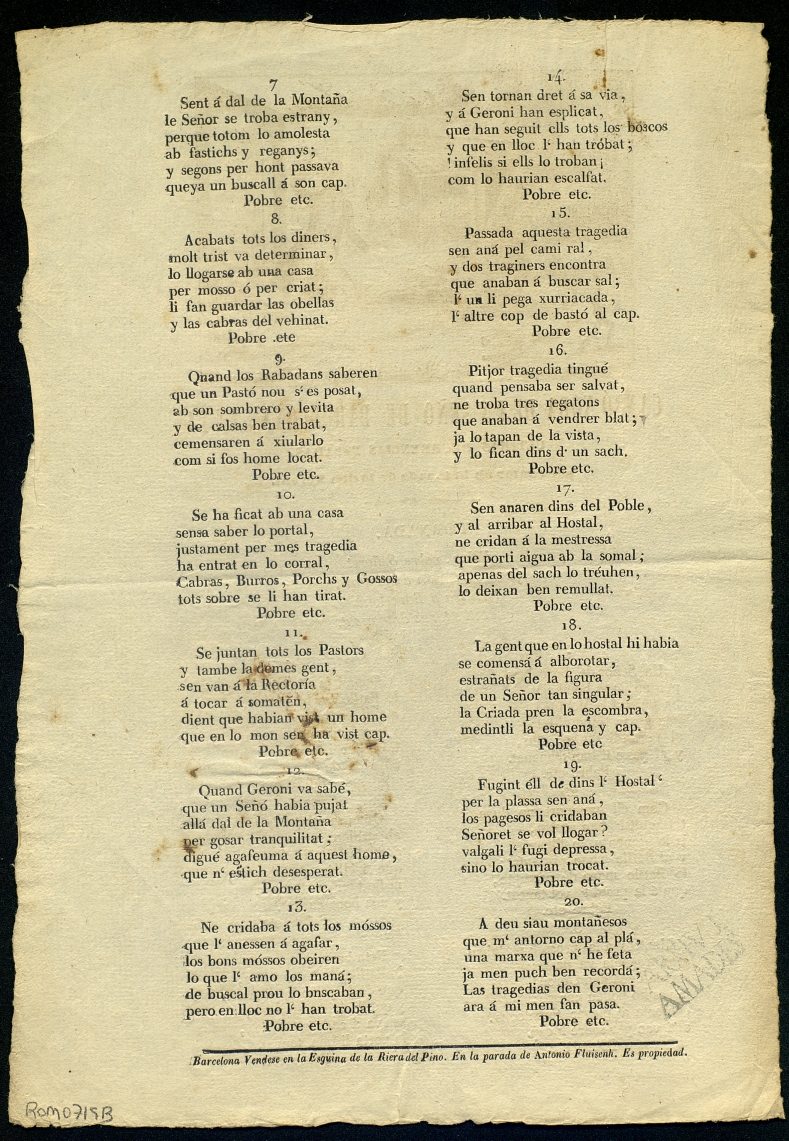 7
Sent á dal de la Montaña
le Señor se troba estrany,
perque totom lo amolesta
ab fastichs y reganys;
y segons per hont passava
queya un buscall á son cap.
Pobre etc.
8.
Acabats tots los diners,
molt trist va determinar,
lo llogarse ab una casa
per mosso ó per criat;
li fan guardar las obellas
y las cabras del vehinat.
Pobre .ete
9.
Quand los Rabadans saberen
que un Pastó nou s‘ es posat,
ab son sombrero y levita
y de calsas ben trabat,
cemensaren á xiularlo
com si fos home locat.
Pobre etc.
10.
Se ha ficat ab una casa
sensa saber lo portal,
justament per mes tragedia
ha entrat en lo corral,
Cabras, Burros, Porchs y Gossos
tots sobre se li han tirat.
Pobre etc.
11.
Se juntan tots los Pastors
y tambe la demes gent,
sen van á la Rectoría
á tocar á somatén,
dient que habian vist un home
que en lo mon sen ha vist cap.
Pobre etc.
12.
Quand Geroni va sabé,
que un Señó habia pujat
allá dal de la Montaña
per gosar tranquilitat;
digué agafeuma á aquest home,
que n‘ estich desesperat.
Pobre etc.
13.
Ne cridaba á tots los móssos
que l‘ anessen á agafar,
los bons móssos obeiren
lo que l‘ amo los maná;
de buscal prou lo bnscaban,
pero en lloc no l‘ han trobat.
Pobre etc.
14.
Sen tornan dret á sa via,
y á Geroni han esplicat,
que han seguit ells tots los boscos
y que en lloc l‘ han tróbat;
! infelis si ells lo troban ¡
com lo haurian escalfat.
Pobre etc.
15.
Passada aquesta tragedia
sen aná pel cami ral,
y dos traginers encontra
que anaban á buscar sal;
l‘ un li pega xurriacada,
l‘ altre cop de bastó al cap.
Pobre etc.
16.
Pitjor tragedia tingué
quand pensaba ser salvat,
ne troba tres regatons
que anaban á vendrer blat;
ja lo tapan de la vista,
y lo fican dins d‘ un sach.
Pobre etc.
17.
Sen anaren dins del Poble,
y al arribar al Hostal,
ne cridan á la mestressa
que porti aigua ab la somal;
apenas del sach lo tréuhen,
lo deixan ben remullat.
Pobre etc.
18.
La gent que en lo hostal hi habia
se comensá á alborotar,
estrañats de la figura
de un Señor tan singular;
la Criada pren la escombra,
medintli la esquena y cap.
Pobre etc
19.
Fugint éll de dins l‘ Hostal‘
per la plassa sen aná,
los pagesos li cridaban
Señoret se vol llogar?
valgali l‘ fugi depressa,
sino lo haurian trocat.
Pobre etc.
20.
A deu siau montañesos
que m‘ antorno cap al plá,
una marxa que n‘ he feta
ja men puch ben recordá;
Las tragedias den Geroni
ara á mi men fan pasa.
Pobre etc.
ARXIU
AMADES
Barcelona Vendese en la Esquina de la Riera del Pino. En la parada de Antonio Fluisenh. Es propiedad.
ROM0719B